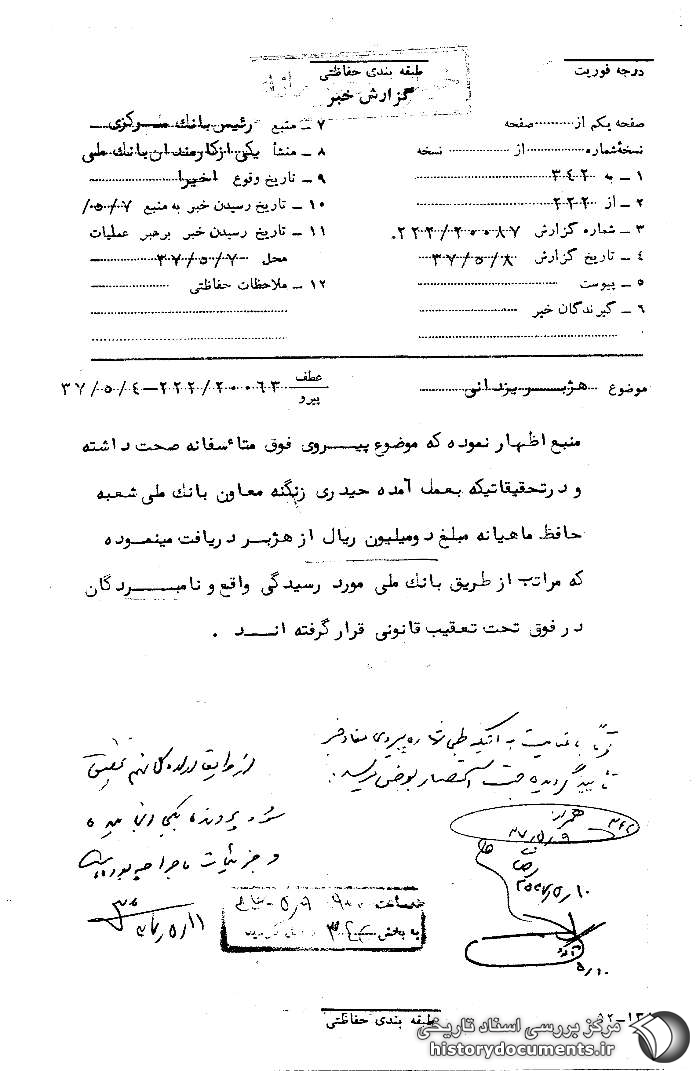 درجه فوریت
طبقه بندی حفاظتی
گزارش خبر
صفحه یکم از .......... صفحه
نسخهٔ شماره .......... از .......... نسخه
۱ ــ به ۳٤۲
۲ ــ از ۲۲۲
۳ ــ شماره گزارش ۲۲۲/۲۰۰۸۷.
٤ ــ تاریخ گزارش ۳۷/۵/۸
۵ ــ پیوست
۶ ــ گیرندگان خبر
۷ ــ منبع رئیس بانک مرکزی
۸ ــ منشأ یکی از کارمندان بانک ملی
۹ ــ تاریخ وقوع اخیرا
۱۰ ــ تاریخ رسیدن خبر به منبع ۰۵/۰۷/
۱۱ ــ تاریخ رسیدن خبر برهبر عملیات
محل ۳۷/۵/۷
۱۲ ــ ملاحظات حفاظتی
موضوع هژبر یزدانی
عطف
پیرو ۲۲۲/۲۰۰۶۳ــ۳۷/۵/٤
منبع اظهار نموده که موضوع پیروی فوق متأسفانه صحت داشته
و در تحقیقاتیکه بعمل آمده حیدری زنگنه معاون بانک ملی شعبه
حافظ ماهیانه مبلغ دو میلیون ریال از هژبر دریافت مینموده
که مراتب از طریق بانک ملی مورد رسیدگی واقع و نامبردگان
در فوق تحت تعقیب قانونی قرار گرفته اند .
با عنایت به اینکه طی شماره پیروی مفاد خبر
تأیید گردیده جهت استحضار بعرض میرسد.
۳۷/۵/۹
۵/۱۰
۵/۱۰
از اداره کل نهم تحقیق
شود پرونده
و جزئیات ماجرا
۳۷/۵/۱۱
ساعت ۹۰۰ ۵/۹
به بخش ۳٤۲
طبقه بندی حفاظتی
مرکز بررسی اسناد تاریخی
historydocuments.ir